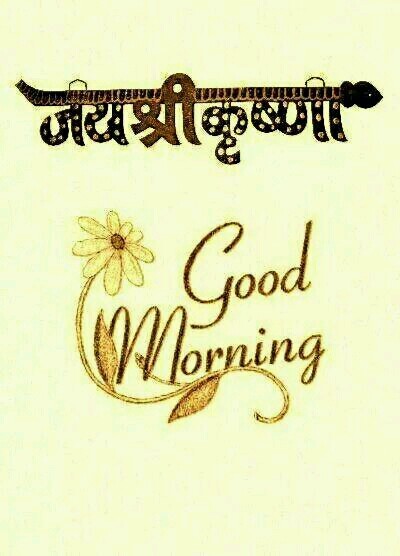 जय श्री कृष्णा
Good
Morning